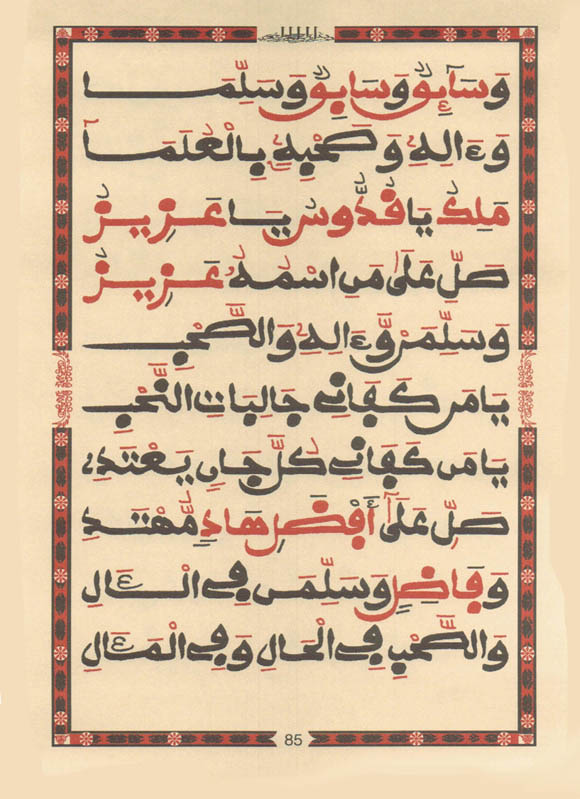 وَسَآئِقٍ وَسَابِقٍ وَسَلِّمَا
وَءَالِهِ وَصَحْبِهِ بِالْعُلَمَآ
مَلِكُ يَا قُدُّوسُ يَا عَزِيزُ
صَلِّ عَلَى مَنِ اسْمُهُ عَزِيزُ
وَسَلِّمَنْ وَّءَالِهِ وَالصَّحْبِ
يَا مَن كَفَانِي جَالِبَاتِ النَّحْبِ
يَا مَن كَفَانِي كُلَّ جَانٍ يَعْتَدِي
صَلِّ عَلَى أَفْضَلِ هَادٍ مُّهْتَدِ
وَفَاضِلٍ وَسَلِّمَن فِي الْءَالِ
وَالصَّحْبِ فِي الْحَالِ وَفِي الْمَءَالِ
85